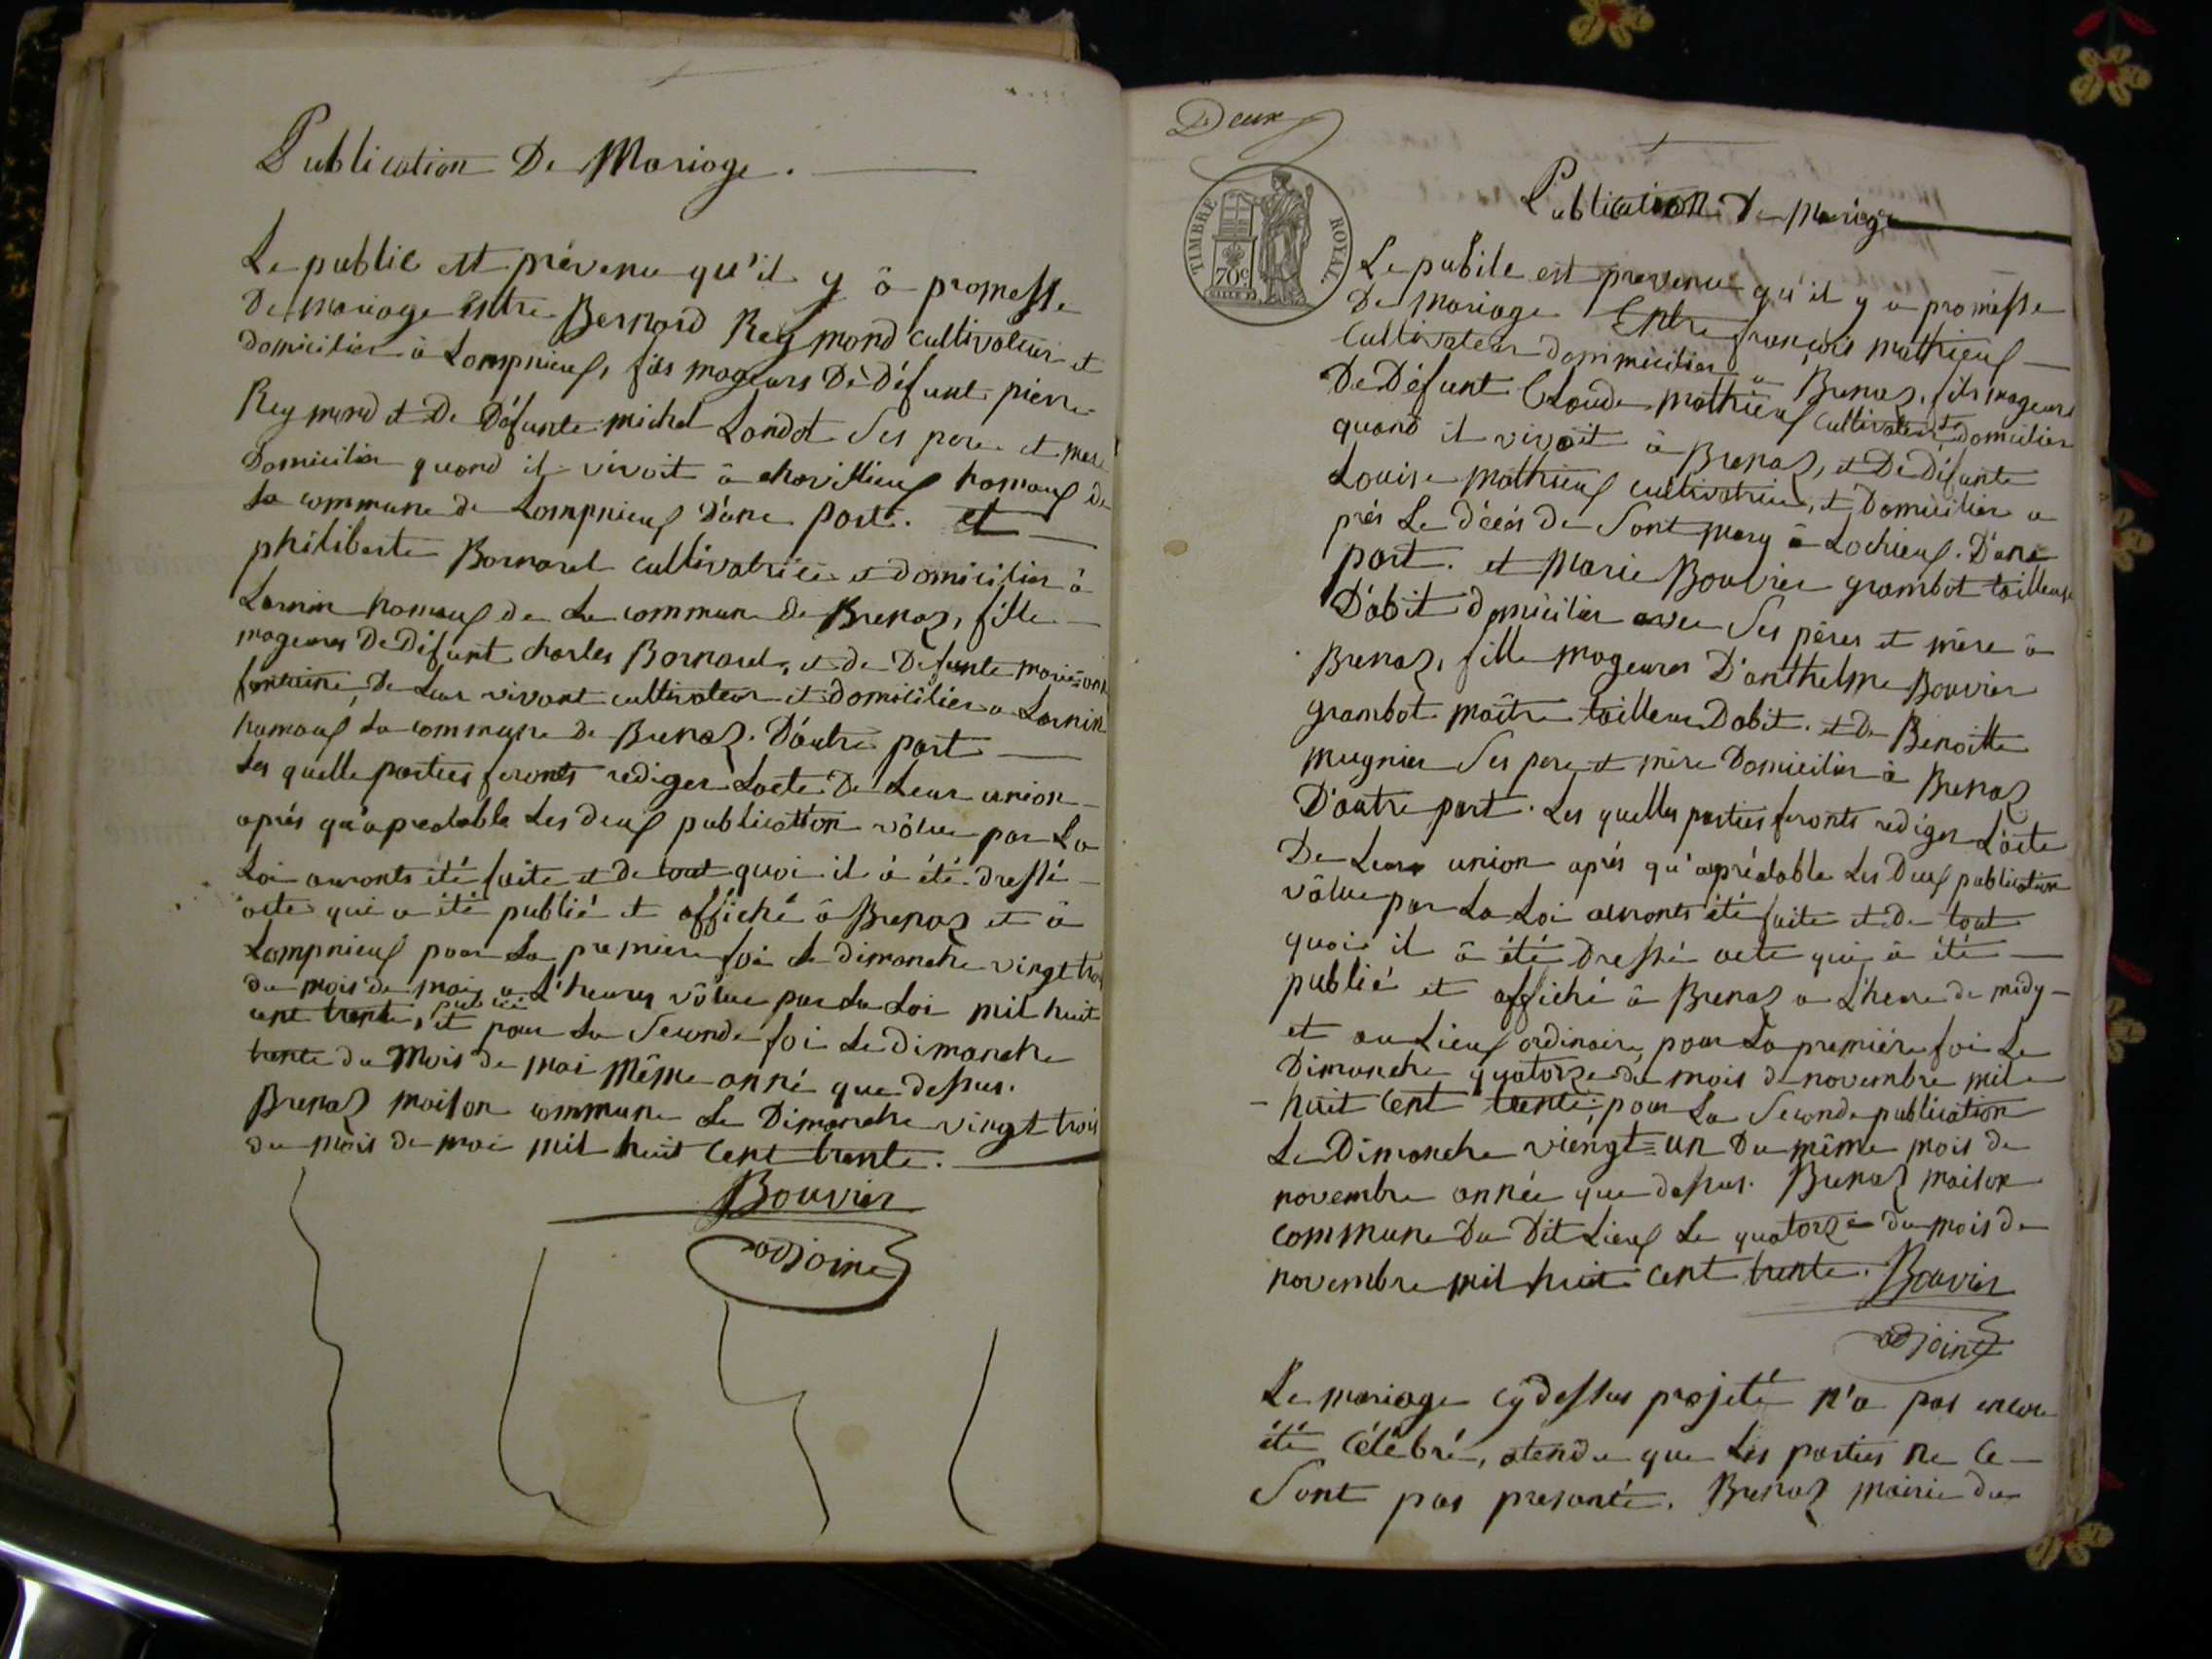 Publication De Mariage.
Le public est prévenu qu'il y â promesse
De mariage Entre Bernard Reymond cultivateur et
domicilier â Lompnieux, fils mageurs Dè Défunt pierre
Reymond et De Défunte michel Landot Ses pere et mere
Domicilier quand il vivoit â chavillieux hamaux de
La commune de Lompnieux D'une part. et
philiberte Bornarel cultivatrice et domicilier â
Larnin hamaux de La commune de Brenaz, fille
mageures De Défunt charles Bornarel, et de Defunte marie
fontaine, De Leur vivant cultivateur et domicilier a Larnin
hamaux La commune de Brenaz. D'autre part
Les quelle parties feronts rediger L'acte De Leur union
aprés qu'apreolable Les deux publication vôlue par La
Loi auronts été faite et de tout quoi il â été dressé
acte qui a été publié et affiché â Brenaz et â
Lompnieux pour La premiere foi Le dimanche vingt trois
du mois de mai a L'heures vôlue par La Loi mil huit
cent trente, et publié pour La Seconde foi Le dimanche
trente du Mois de mai Même anné que dessus.
Brenaz maison commune Le Dimanche vingt trois
du mois de mai mil huit Cent trente.
Bouvier
adjoint
Deux
TIMBRE ROYAL
70c
Publication De Mariage
Le pubile est prevenu qu'il y a promesse
De Mariage Entre françois mathieux
Cultivateur dommicilier a Brenaz, fils mageurs
De Défunt Cloude mathieux cultivateur et domicilier
quand il vivoit â Brenaz, et De défunte
Louise mathieux cultivatrice, et Domicilier a
prés Le décés de Sont mary â Lochieux. D'une
part. et Marie Bouvier grambot tailleuse
D'abit domicilier avec Ses péres et mére â
Brenaz, fille mageures D'anthelme Bouvier
grambot maître tailleur Dabit. et De Benoitte
mugnier Ses pere et mère Domicilier â Brenaz
D'autre part. Les quelles parties feronts rediger L'acte
De Leur union aprés qu'apréolable Les Deux publication
vôlue par La Loi auronts été faite et de tout
quoi il â été Dressé acte qui â été
publié et affiché â Brenaz a L'heure de midy
et au Lieux ordinaire, pour La premiére foi Le
Dimanche quatorze du mois de novembre mil
huit Cent trente, pour La Seconde publication
Le Dimanche viengt=un Du même mois de
novembre année que dessus. Brenaz maison
commune Du Dit Lieux Le quatorze du mois de
novembre mil huit Cent trente. Bouvier
adjoint
Le mariage cÿdessus projeté n'a pas encore
été Célébré, atendu que Les parties ne Ce
Sont pas presanté. Brenaz mairie du